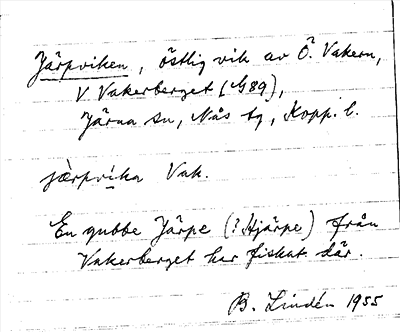 Järpviken, östlig vik av Ö. Vakern,
V Vakerberget (G89),
Järna sn, Nås tg, Kopp. l.
jærpvika Vak.
En gubbe Järpe (? Hjärpe) från
Vakerberget har fiskat där.
B. Lindén 1955